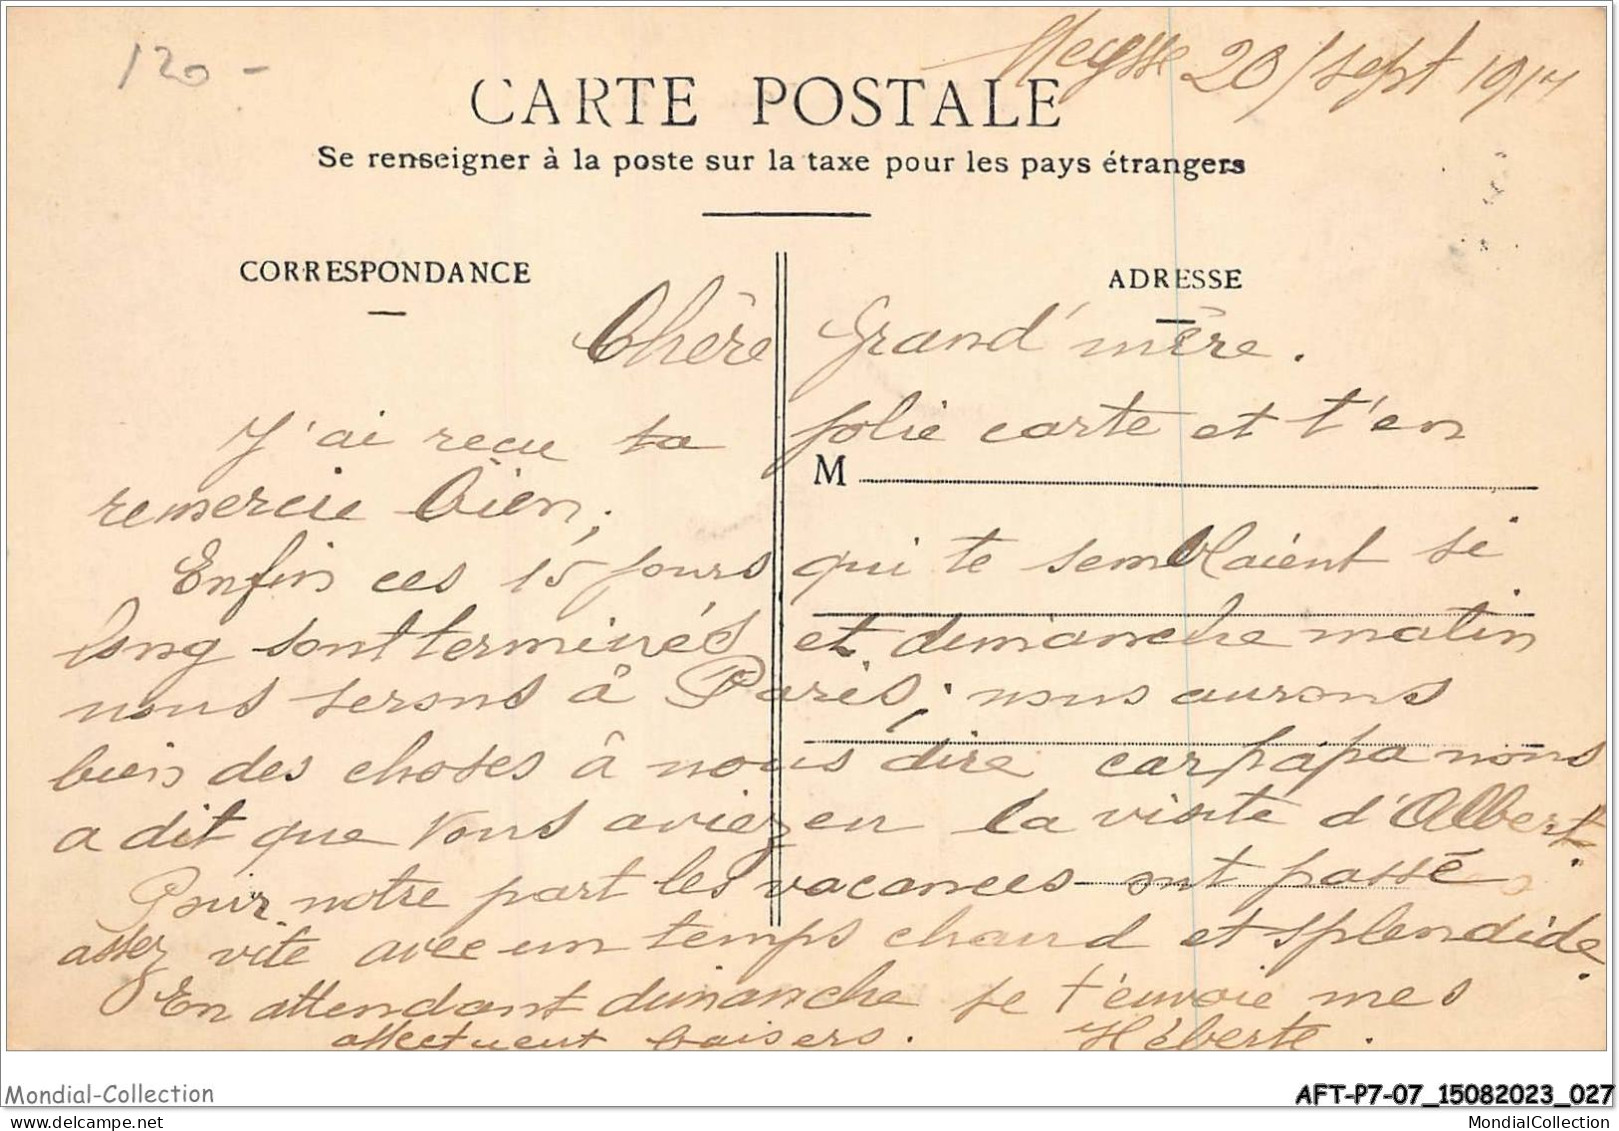 120 -
Meysse 20 sept 1917
CARTE POSTALE
Se renseigner à la poste sur la taxe pour les pays étrangers
CORRESPONDANCE
ADRESSE
Chère Grand'mère.
J'ai reçu ta jolie carte et t'en
M
remercie bien;
Enfin ces 15 jours qui te semblaient si
long sont terminés et dimanche matin
nous serons à Paris; nous aurons
bien des choses à nous dire car papa nous
a dit que vous aviez eu la visite d'Albert.
Pour notre part les vacances ont passé
assez vite avec un temps chaud et splendide.
En attendant dimanche je t'envoie mes
affectueux baisers. Héberte.
Mondial-Collection
AFT-P7-07_15082023_027
My Mondial-Collection
MondialCollection